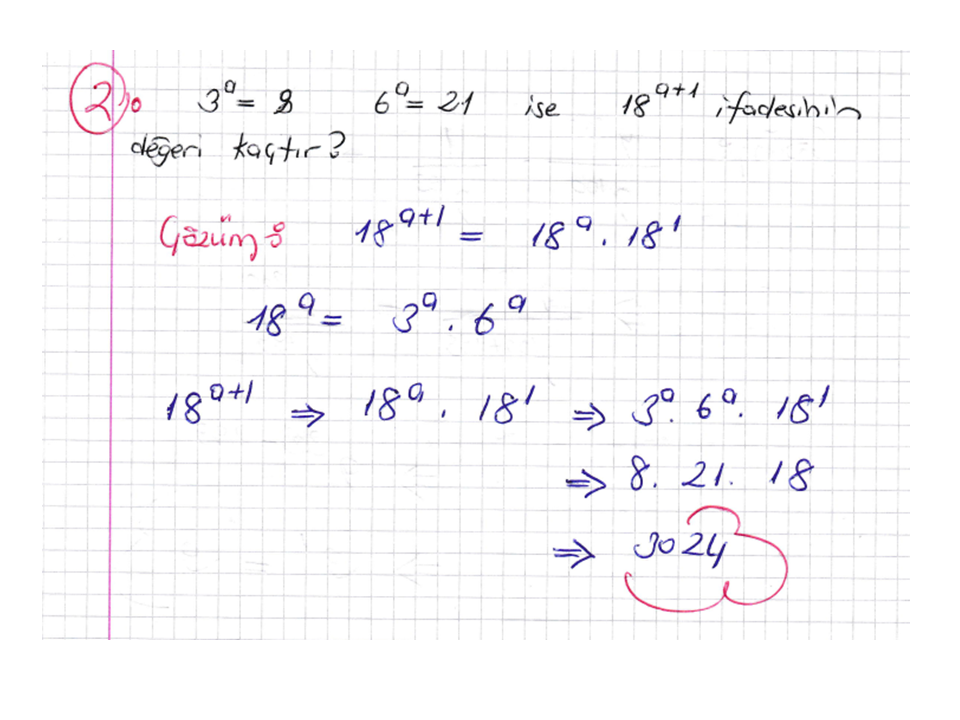 2) 3^a = 8 6^a = 21 ise 18^(a+1) ifadesinin
değeri kaçtır?
Çözüm: 18^(a+1) = 18^a . 18^1
18^a = 3^a . 6^a
18^(a+1) ⇒ 18^a . 18^1 ⇒ 3^a . 6^a . 18^1
⇒ 8. 21. 18
⇒ 3024